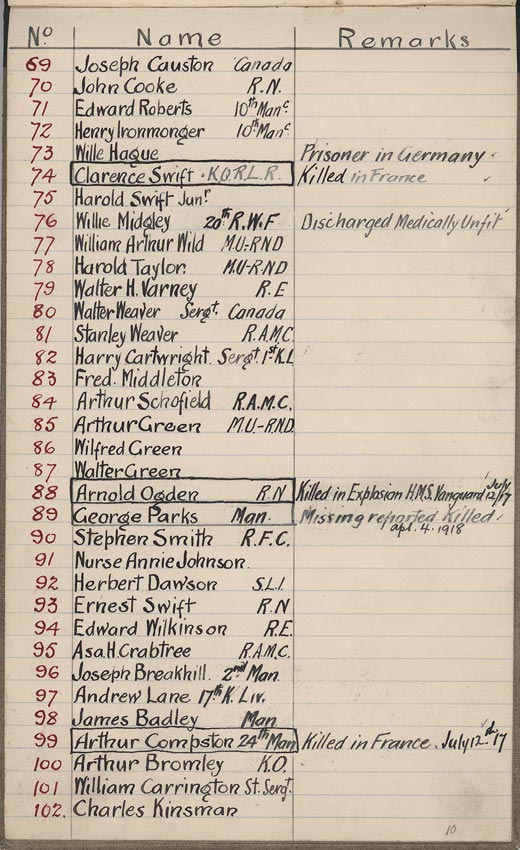 No. Name Remarks
69 Joseph Causton Canada
70 John Cooke R.N.
71 Edward Roberts 10th Manc
72 Henry Ironmonger 10th Manc
73 Wille Hague Prisoner in Germany
74 Clarence Swift . K.O.R.L.R. Killed in France
75 Harold Swift Junr
76 Willie Midgley 20th R.W.F Discharged Medically Unfit
77 William Arthur Wild M.U-RND
78 Harold Taylor. M.U-R-ND
79 Walter H. Varney R.E
80 Walter Weaver Sergt. Canada
81 Stanley Weaver R.A.M.C.
82 Harry Cartwright. Sergt. 1st K.L
83 Fred. Middleton
84 Arthur Schofield R.A.M.C.
85 Arthur Green M.U.-RND
86 Wilfred Green
87 Walter Green
88 Arnold Ogden R.N Killed in Explosion H.M.S. Vanguard July 12/17
89 George Parks Man. Missing reported Killed
apl. 4. 1918
90 Stephen Smith R.F.C.
91 Nurse Annie Johnson.
92 Herbert Dawson S.L.I.
93 Ernest Swift R.N
94 Edward Wilkinson R.E.
95 Asa.H.Crabtree R.A.M.C.
96 Joseph Breakhill. 2nd Man.
97 Andrew Lane 17th K. Liv.
98 James Badley Man
99 Arthur Compston 24th Man Killed in France. July 12.d 17
100 Arthur Bromley K.O.
101 William Carrington St. Sergt.
102. Charles Kinsman
10